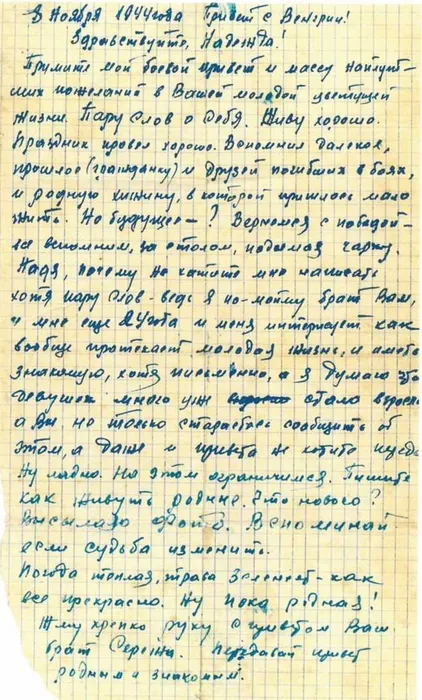 8 Ноября 1944 года Привет с Венгрии!
Здравствуйте, Надежда!
Примите мой боевой привет и массу наилут-
ших пожеланий в Вашей молодой цветущей
жизни. Пару слов о себя. Живу хорошо.
Праздник провел хорошо. Вспомнил далекое,
прошлое (гражданку) и друзей погибших в боях,
и родную хижину, в которой пришлось мало
жить. Но будущее — ? Вернемся с победой-
то вспомним, за столом, подымая чарку.
Надя, почему не хотите мне написать
хотя пару слов - ведь я по-моему брат Вам,
и мне еще и меня интересует как
вообще протекает молодая жизнь, и иметь
знакомую, хотя письменно, а я думаю что
девушек много уже стало взросл
а Вы не только стараетесь сообщить об
этом, а даже и привета не хотите
Ну ладно. На этом ограничимся. Пишите
как живуть родные. Что нового?
Высылаю фото. Вспоминай
если судьба изменить.
Погода теплая, трава зеленеет - как
все прекрасно. Ну пока родная!
Жму крепко руку с приветом Ваш
брат Сережа. Передавай привет
родным и знакомым.